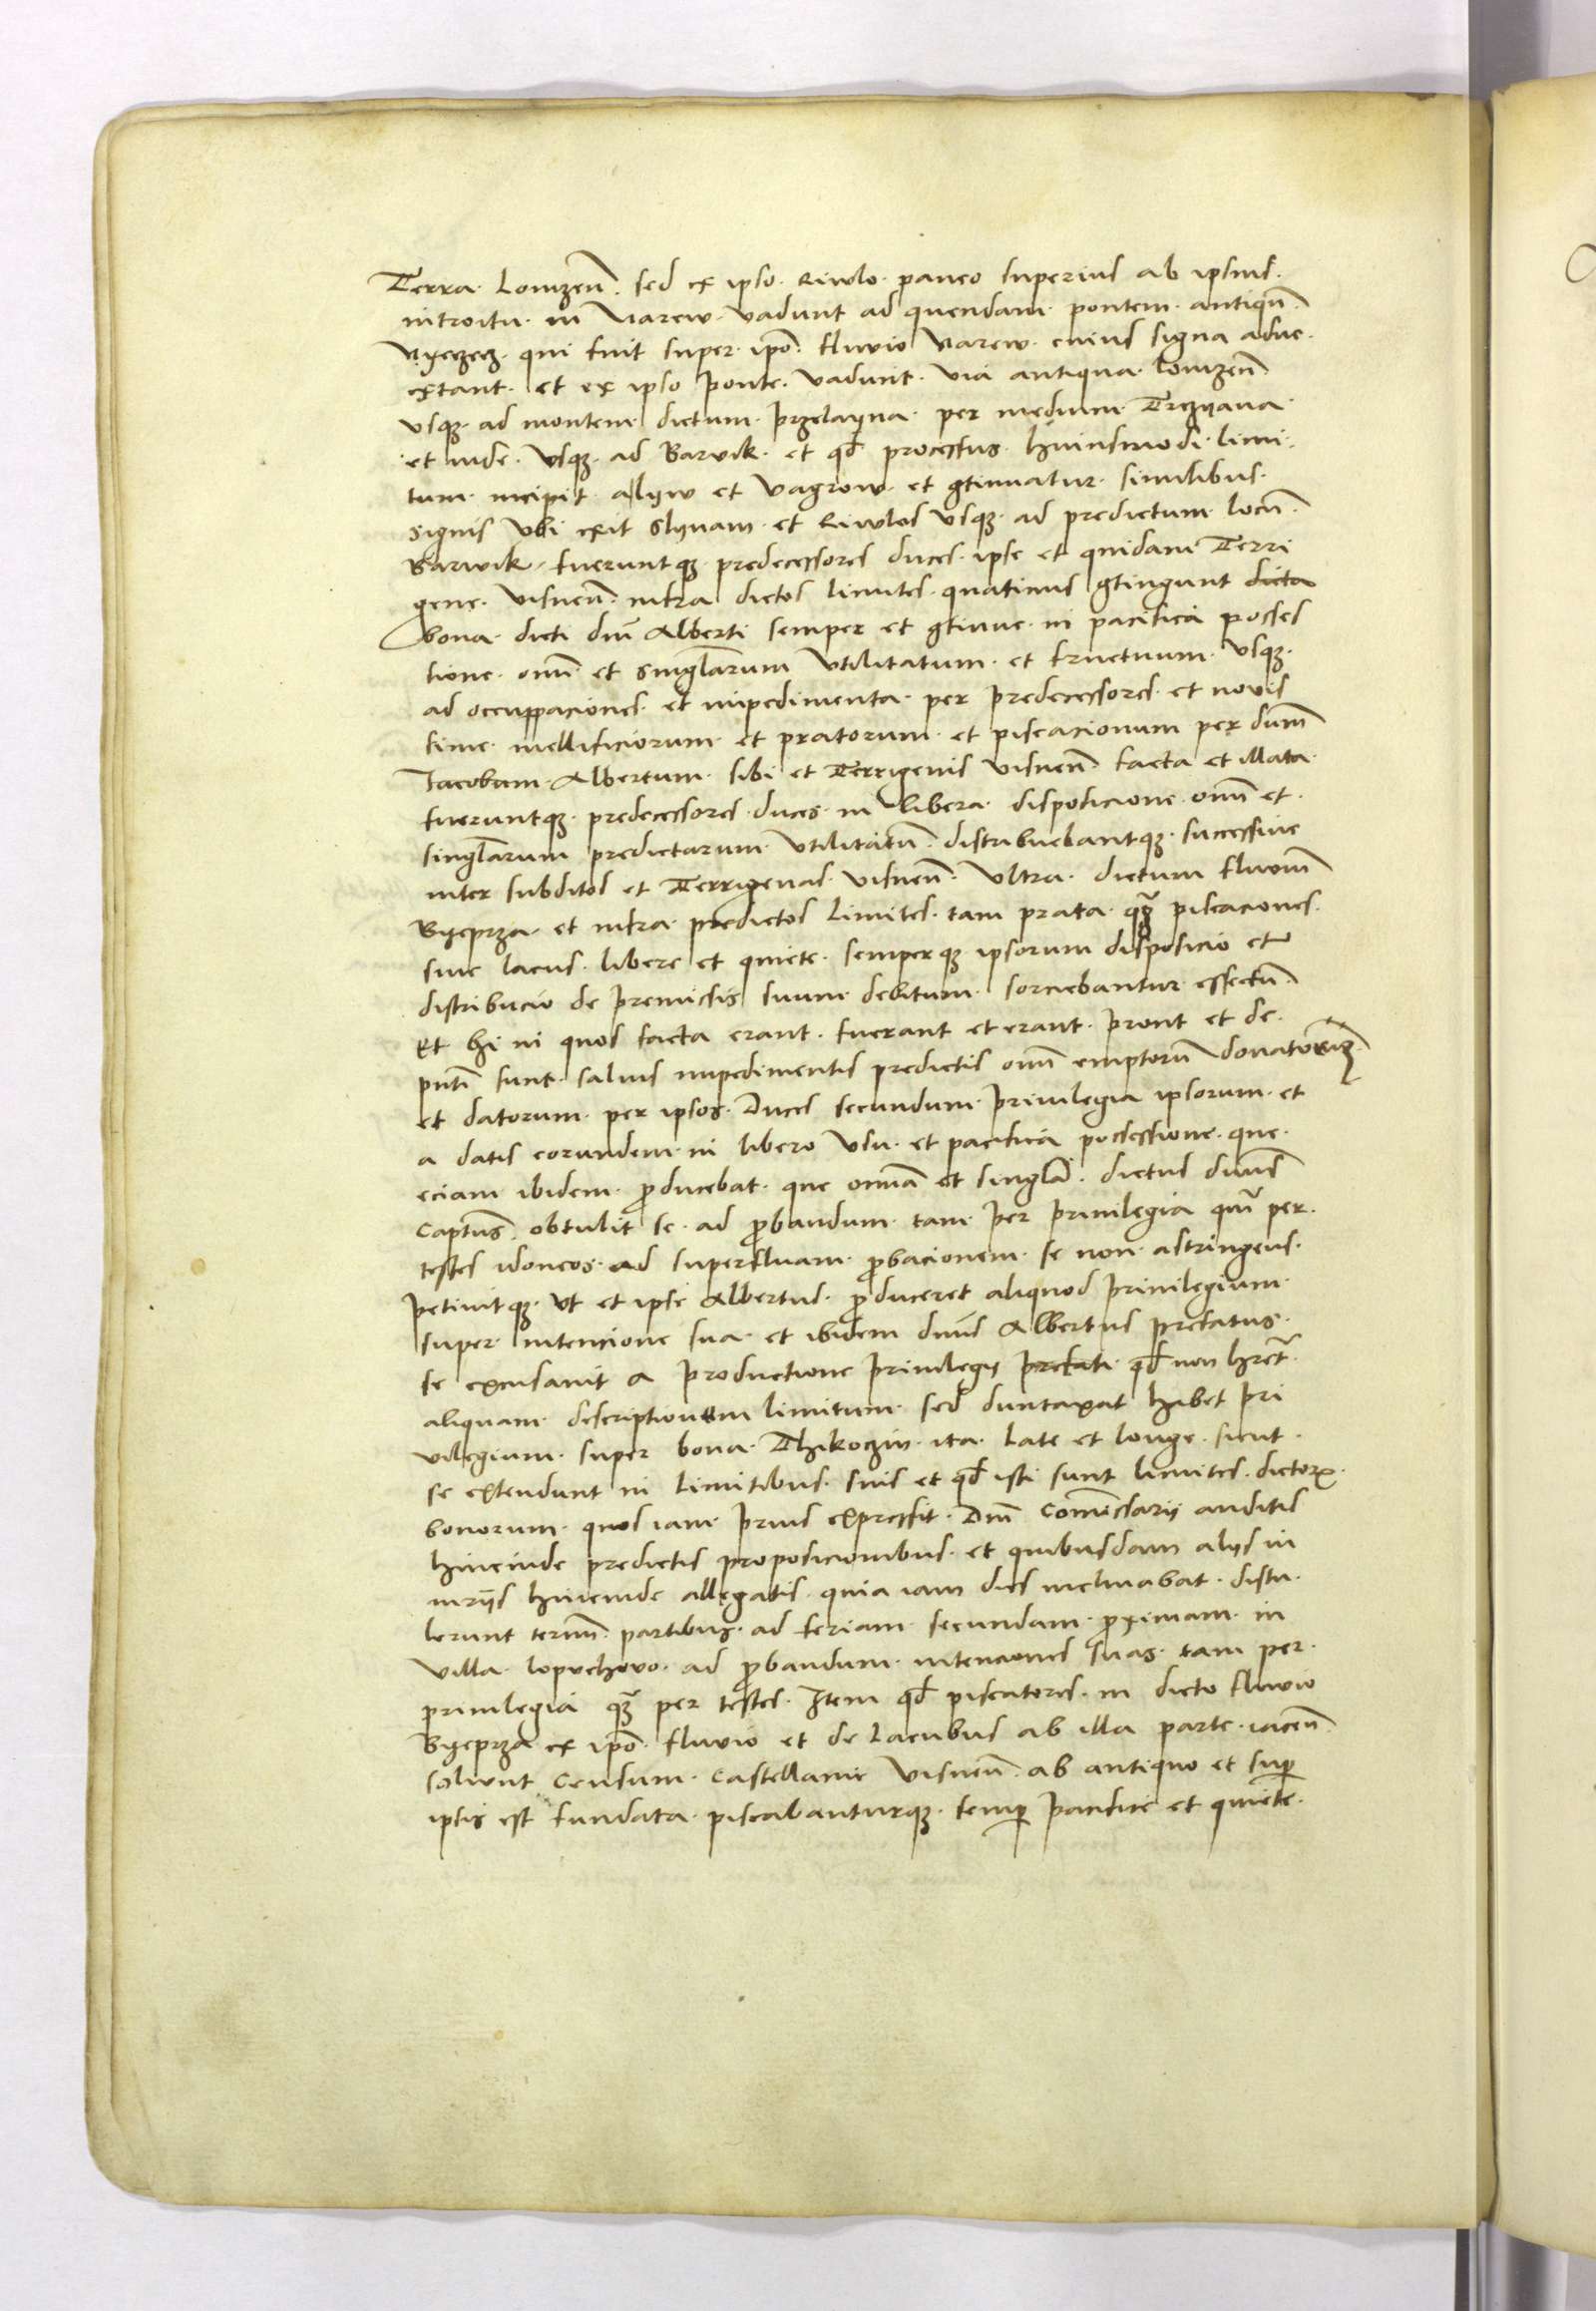 Terra. Lomzen̄. sed ex ipso. Riwlo. pauco superius ab ipsius.
introitu. in Narew. vadunt ad quendam. pontem. antiqū.
qui fuit super. ip̄o. fluvio Narew. cuius signa adue.
extant. et ex ipso ponte. vadunt. via antiqua. Lomzen̄.
vsq3. ad montem. dictum. przelayna. per medium.
et inde. vsq3. ad Barwik. et qd̄ processus. huiusmodi. limi
tum. incipit. alyw et vagrow. et ꝯtinuatur. similibus.
signis vbi exit Slynam. et Riwlos vsq3. ad predictum. locū.
Barwik. fueruntq3. predecessores duces. ipse et quidam Terri
gene. visnen̄. infra dictos limites. quatinus ꝯtingunt dicta
bona. dicti dn̄i Alberti semper et ꝯtinue. in pacifica posses
sione. om̄i et singl̄arum vtilitatum. et fructuum. vsq3.
ad occuppaciones. et impedimenta. per predecessores. et novis
sime. mellificiorum. et pratorum. et piscacionum per dn̄m
Jacobum. Albertum. sibi et Terrigenis visnen̄. facta et illata.
fueruntq3. predecessores. duces. in libera. disposicione. om̄i et.
singl̄arum predictarum. vtilitatū. distribuebantq3. successiue
inter subditos et Terrigenas. visnen̄. vltra. dictum fluviū
Byeprza. et infra. predictos limites. tam prata. q̄3 piscaciones.
siue lacus. libere et quiete. semperq3 ipsorum disposicio et
distribucio de premissis suum debitum. sorciebantur effectū
Et hi in quos facta erant. fuerant et erant. prout et de.
pn̄ti sunt. saluis impedimentis predictis om̄i emptorū donator3
et datorum. per ipsos. Duces secundum. priuilegia ipsorum. et
a datis eorundem. in libero vsu. et pacifica possessione. que.
eciam ibidem. ꝓducebat. que om̄ia et singl̄a. dictus dn̄us
Captus. obtulit se. ad ꝓbandum. tam. per priuilegia qm̄ per.
testes idoneos. ad superfluam. ꝓbacionem. se non. astringens.
petiuitq3. vt et ipse Albertus. ꝓduceret aliquod priuilegium.
super. intencione sua. et ibidem dn̄us Albertus prefatus.
se excusauit a productione priuilegy prefati. qd̄ non hret̄.
aliquam. descriptionem limitum. sed duntaxat habet pri
uilegium. super bona. Thikoczin. ita. late et longe. sicut.
se extendunt in limitibus. suis et qd̄ isti sunt limites. dictorꝝ.
bonorum. quos iam. prius expressit. Dn̄i Com̄issarii auditis
hincinde predictis proposicionibus. et quibusdam alys in
iurijs hincinde allegatis. quia iam dies inclinabat. distu.
lerunt termi. partibus. ad feriam. secundam. ꝓximam. in
villa. lopuchovo. ad ꝓbandum. intenciones suas. tam per.
priuilegia q̄3 per testes. Item qd̄ piscatores. in dicto fluvio
Byeprza. ex ip̄o. fluvio et de lacubus ab illa parte. iacen̄.
soluunt Censum. Castellanie visnen̄. ab antiquo et suꝑ
ipsis est fundata. piscabanturq3. semꝑ pacifice et quiete.